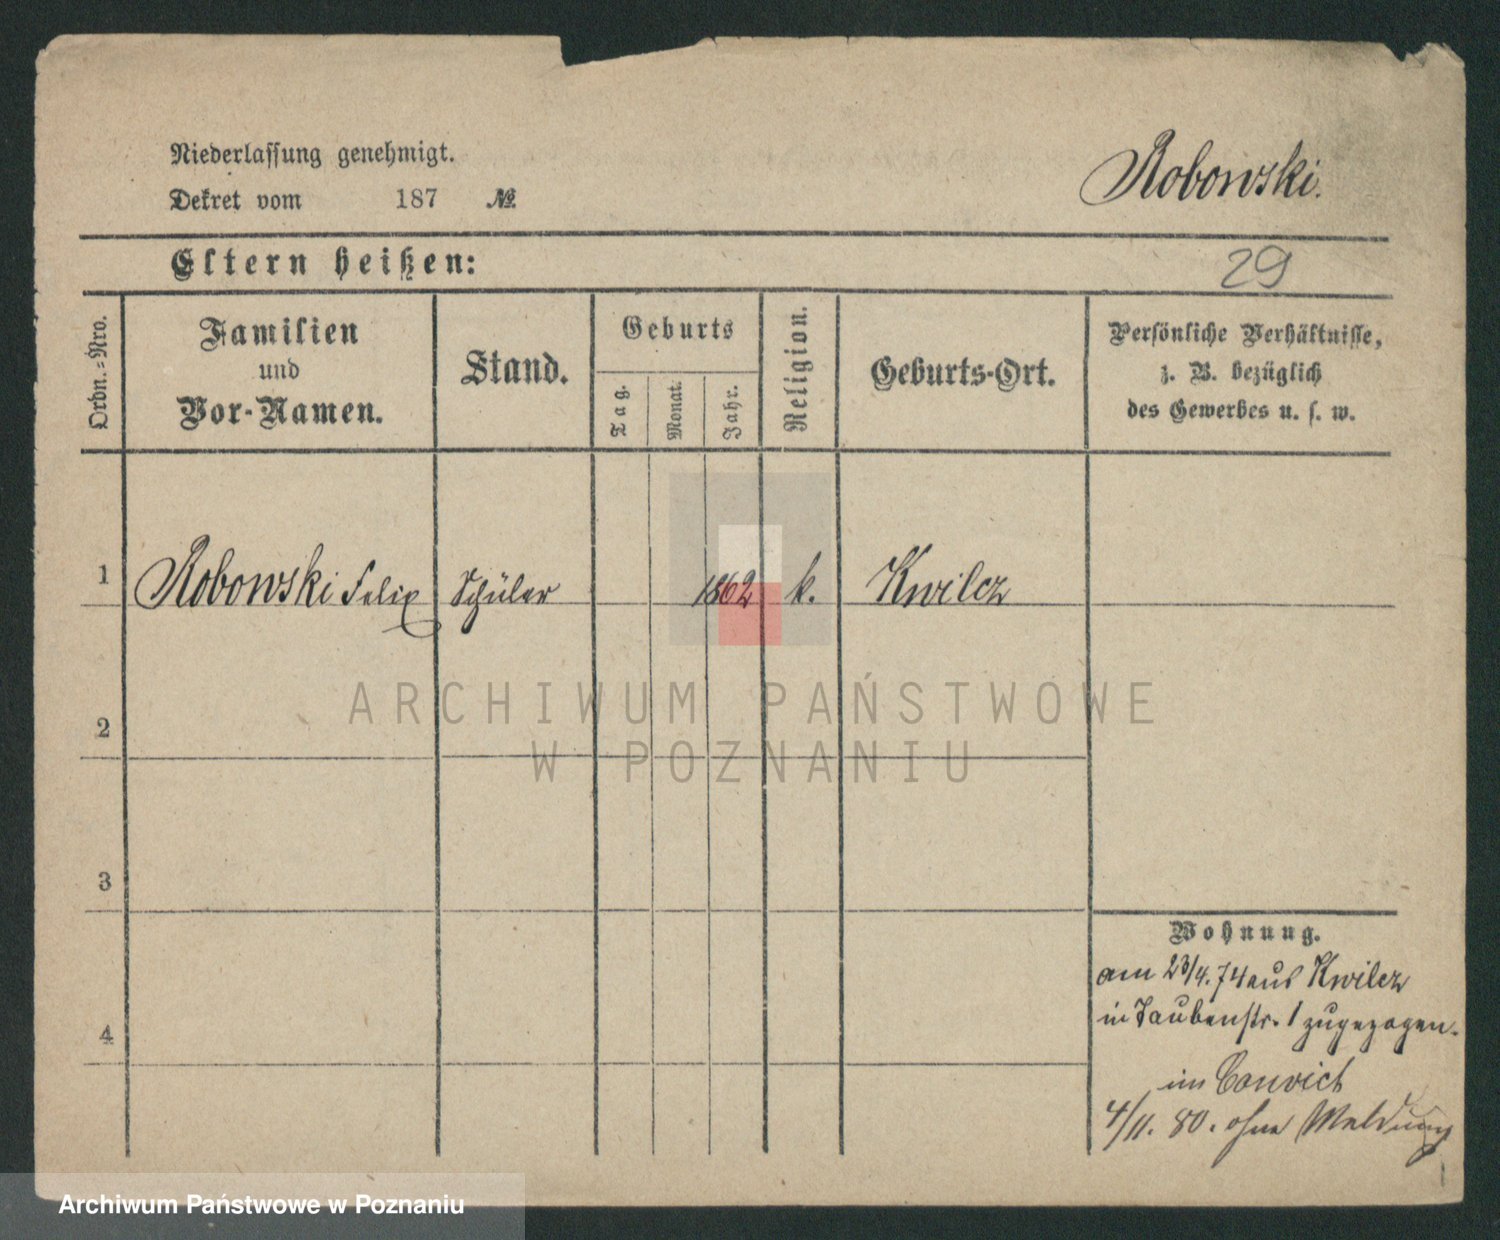 Niederlassung genehmigt.
Dekret vom 187 №
Robowski.
Eltern heißen:
29
Ordn.-Nro.
Familien
und
Vor-Namen.
Stand.
Geburts
Tag.
Monat.
Jahr.
Religion.
Geburts-Ort.
Persönliche Verhältnisse,
z. B. bezüglich
des Gewerbes u. s. w.
1 Robowski Felix Schüler 1862 k. Kwilcz
ARCHIWUM PAŃSTWOWE
W POZNANIU
2
3
4
Wohnung.
am 23/4. 74 aus Kwilcz
in Taubenstr. 1 zugezogen.
im Convict
4/11. 80. ohne Meldung
Archiwum Państwowe w Poznaniu